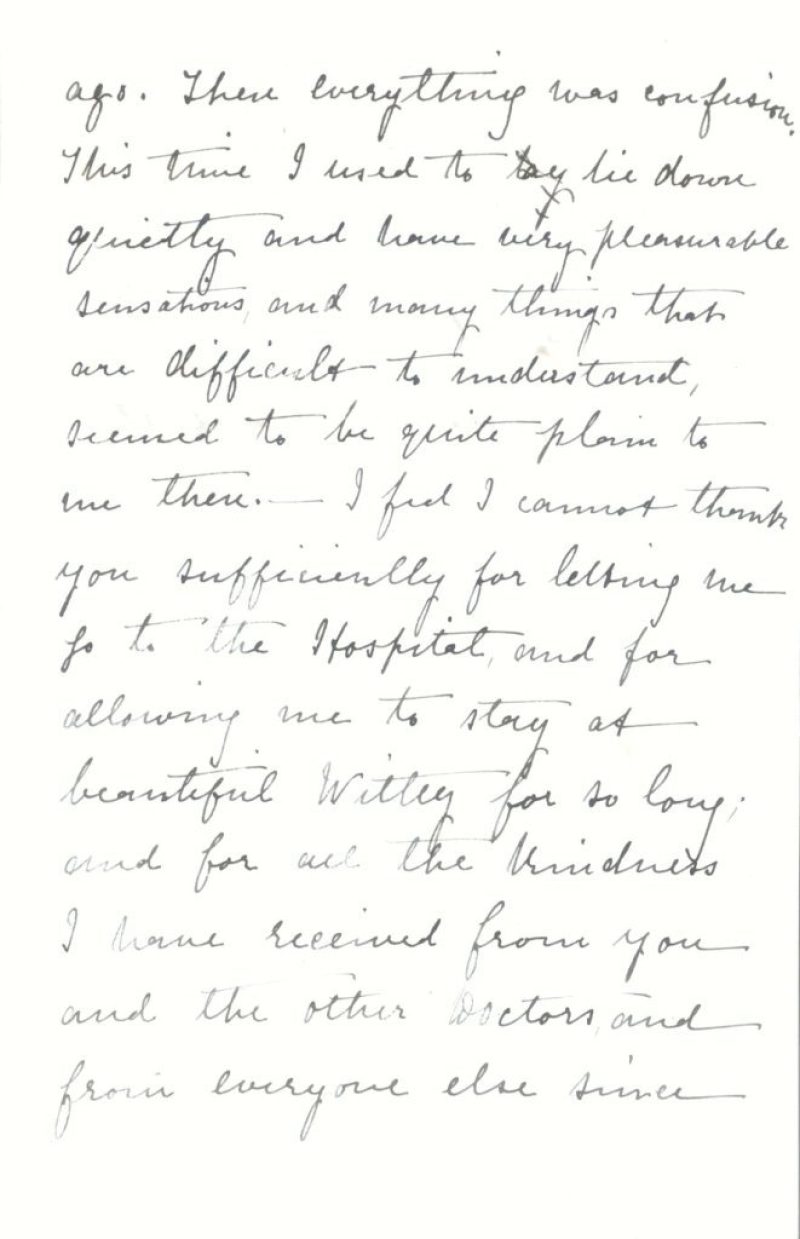 ago. Then everything was confusion.
This time I used to lay lie down
quietly and have very pleasurable
sensations, and many things that
are difficult to understand,
seemed to be quite plain to
me then. — I feel I cannot thank
you sufficiently for letting me
go to the Hospital, and for
allowing me to stay at
beautiful Witley for so long;
and for all the kindness
I have received from you
and the other Doctors, and
from everyone else since